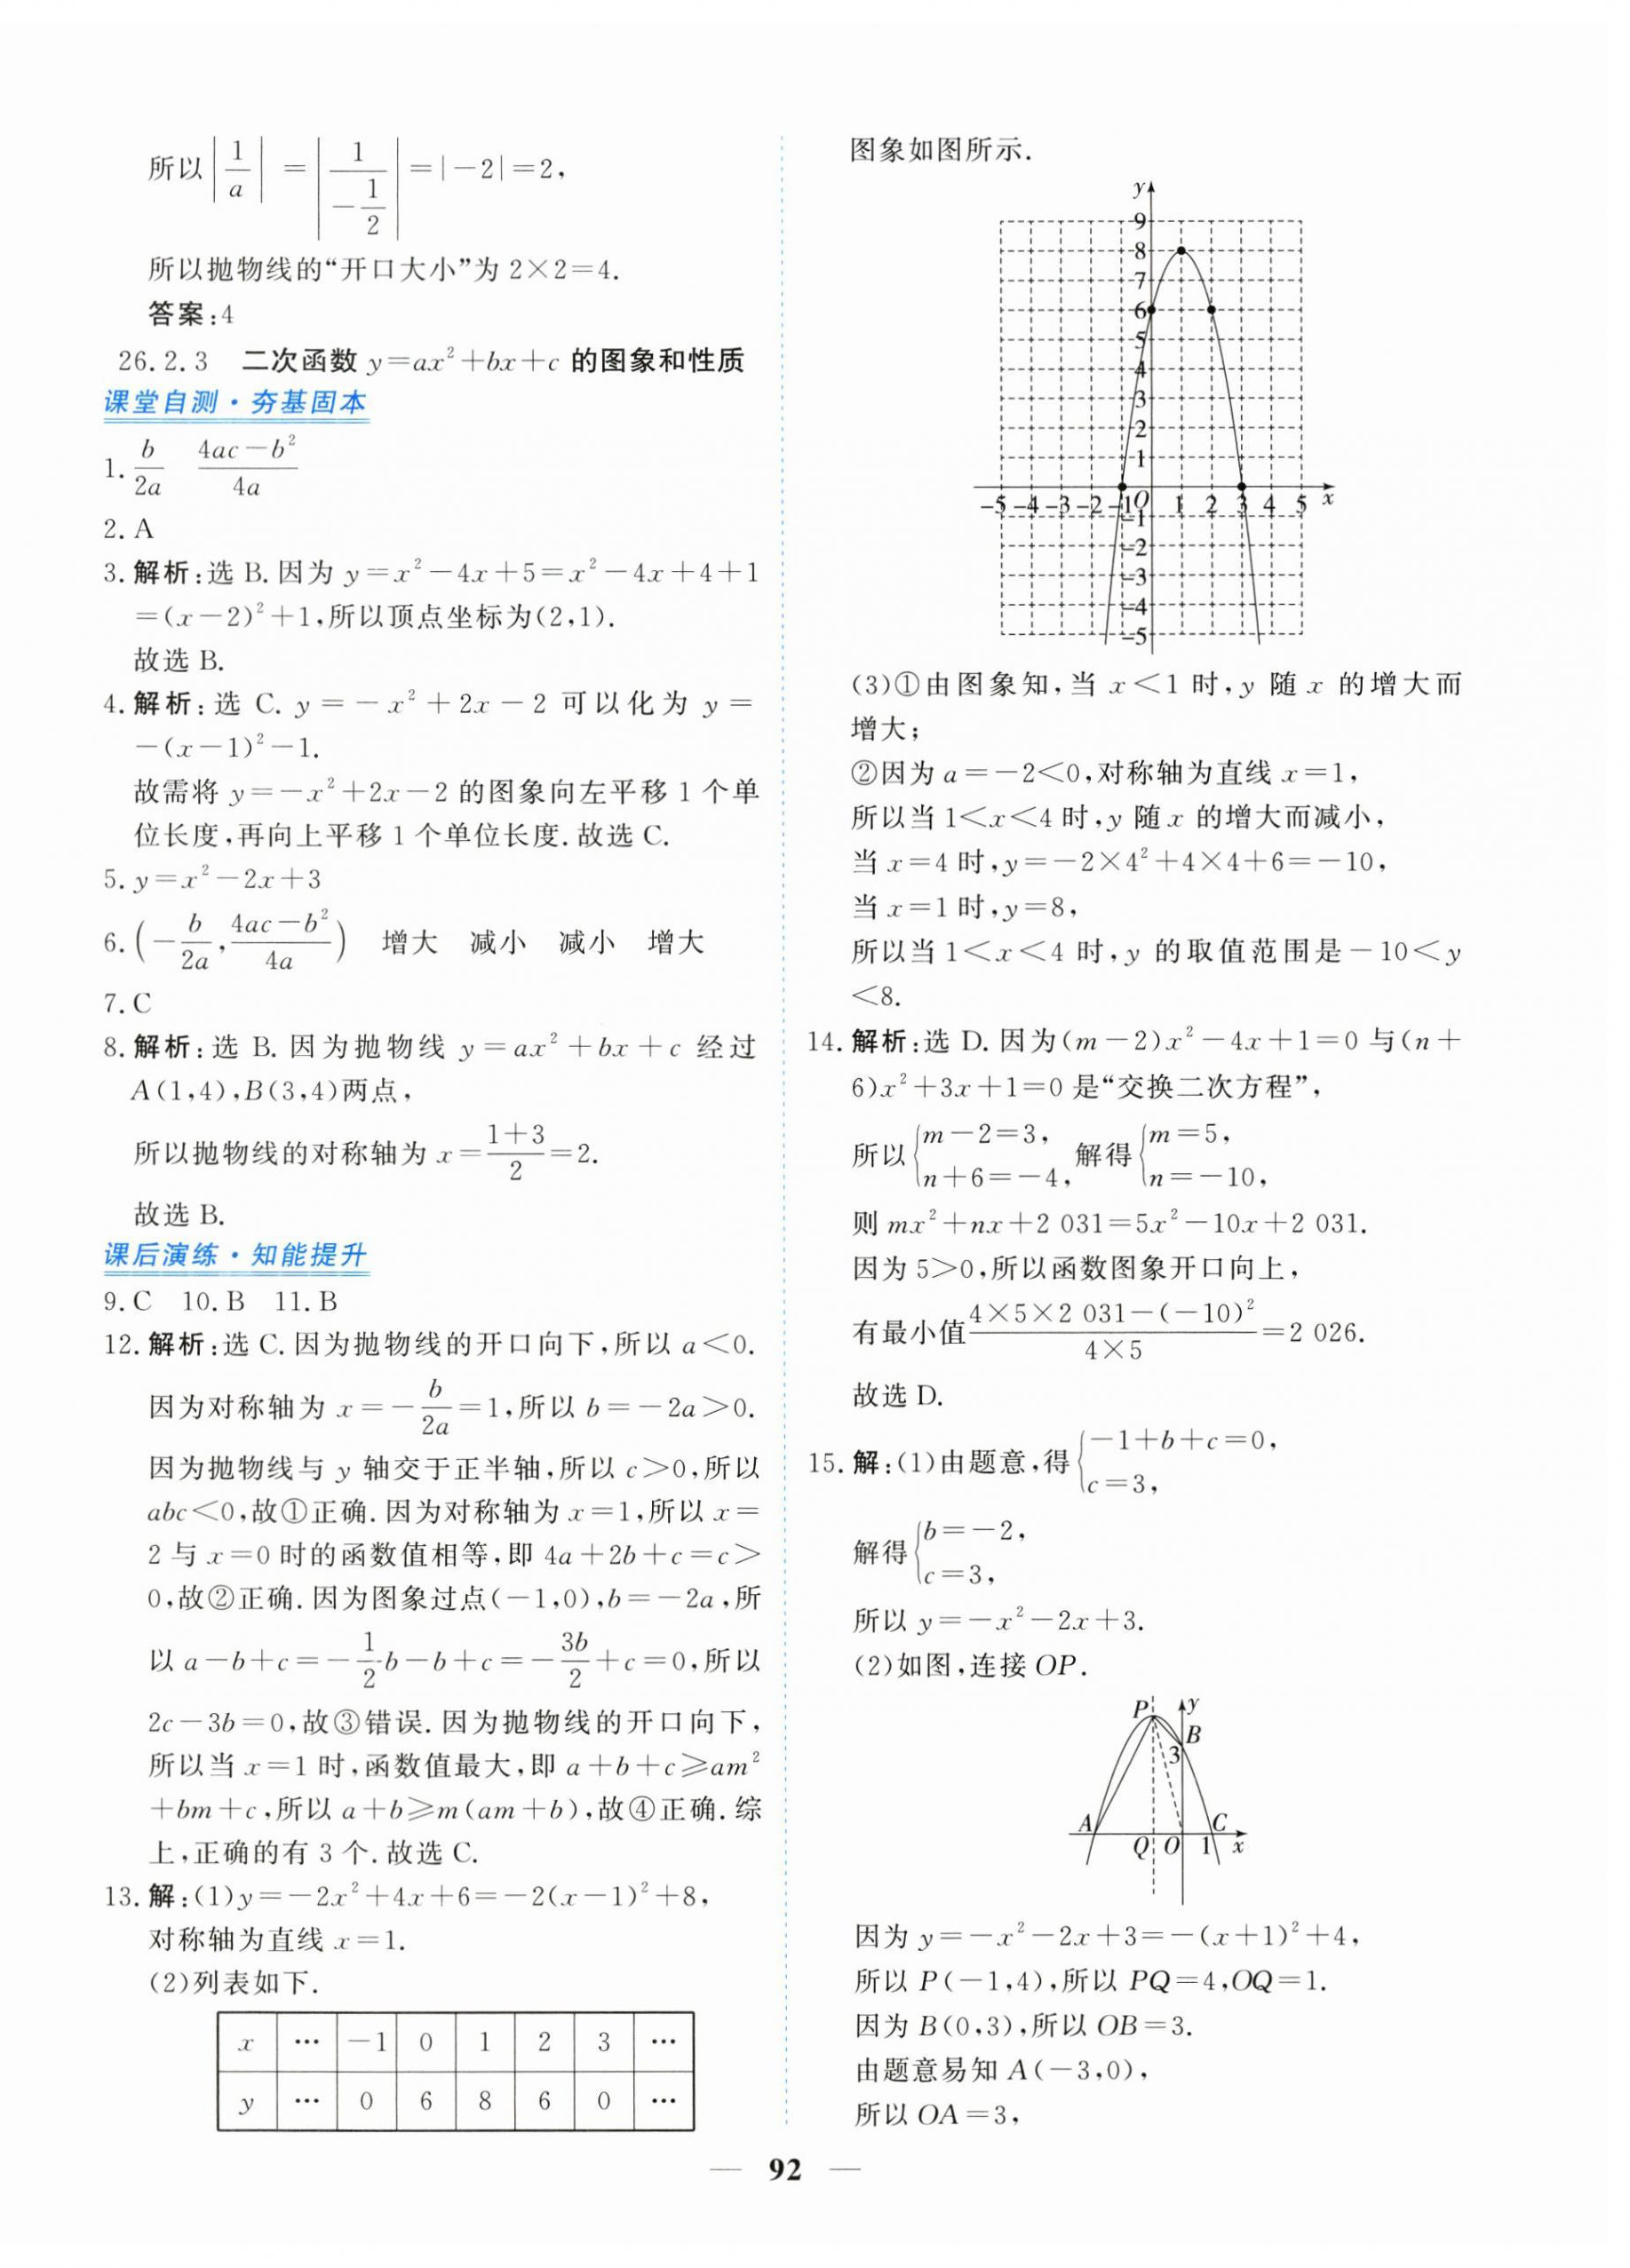 所以|1/a|=|1/(-1/2)|=|-2|=2,
所以抛物线的“开口大小”为2×2=4.
答案:4
26.2.3 二次函数y=ax²+bx+c的图象和性质
课堂自测·夯基固本
1. b/2a (4ac-b²)/4a
2.A
3.解析:选B.因为y=x²-4x+5=x²-4x+4+1
=(x-2)²+1,所以顶点坐标为(2,1).
故选B.
4.解析:选C. y=-x²+2x-2可以化为y=
-(x-1)²-1.
故需将y=-x²+2x-2的图象向左平移1个单
位长度,再向上平移1个单位长度.故选C.
5.y=x²-2x+3
6.(-b/2a,(4ac-b²)/4a) 增大 减小 减小 增大
7.C
8.解析:选B.因为抛物线y=ax²+bx+c经过
A(1,4),B(3,4)两点,
所以抛物线的对称轴为x=(1+3)/2=2.
故选B.
课后演练·知能提升
9.C 10.B 11.B
12.解析:选C.因为抛物线的开口向下,所以a<0.
因为对称轴为x=-b/2a=1,所以b=-2a>0.
因为抛物线与y轴交于正半轴,所以c>0,所以
abc<0,故①正确.因为对称轴为x=1,所以x=
2与x=0时的函数值相等,即4a+2b+c=c>
0,故②正确.因为图象过点(-1,0),b=-2a,所
以a-b+c=-1/2b-b+c=-3b/2+c=0,所以
2c-3b=0,故③错误.因为抛物线的开口向下,
所以当x=1时,函数值最大,即a+b+c≥am²
+bm+c,所以a+b≥m(am+b),故④正确.综
上,正确的有3个.故选C.
13.解:(1)y=-2x²+4x+6=-2(x-1)²+8,
对称轴为直线x=1.
(2)列表如下.
x … -1 0 1 2 3 …
y … 0 6 8 6 0 …
图象如图所示.
y
9
8
7
6
5
4
3
2
1
-5 -4 -3 -2 -1 O 1 2 3 4 5 x
-1
-2
-3
-4
-5
(3)①由图象知,当x<1时,y随x的增大而
增大;
②因为a=-2<0,对称轴为直线x=1,
所以当1<x<4时,y随x的增大而减小,
当x=4时,y=-2×4²+4×4+6=-10,
当x=1时,y=8,
所以当1<x<4时,y的取值范围是-10<y
<8.
14.解析:选D.因为(m-2)x²-4x+1=0与(n+
6)x²+3x+1=0是“交换二次方程”,
所以{m-2=3, n+6=-4, 解得{m=5, n=-10,
则mx²+nx+2 031=5x²-10x+2 031.
因为5>0,所以函数图象开口向上,
有最小值(4×5×2 031-(-10)²)/(4×5)=2 026.
故选D.
15.解:(1)由题意,得{-1+b+c=0, c=3,
解得{b=-2, c=3,
所以y=-x²-2x+3.
(2)如图,连接OP.
P y
B
3
A C
Q O 1 x
因为y=-x²-2x+3=-(x+1)²+4,
所以P(-1,4),所以PQ=4,OQ=1.
因为B(0,3),所以OB=3.
由题意易知A(-3,0),
所以OA=3,
— 92 —